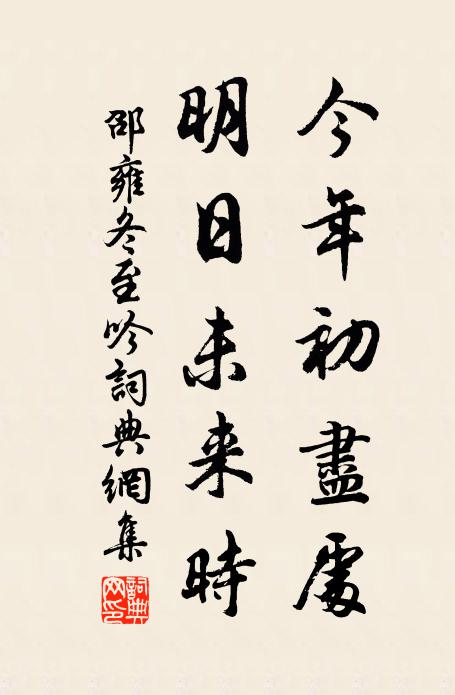 今年初盡處
明日未来時
邵雍冬至吟詞典網集
詞典網印